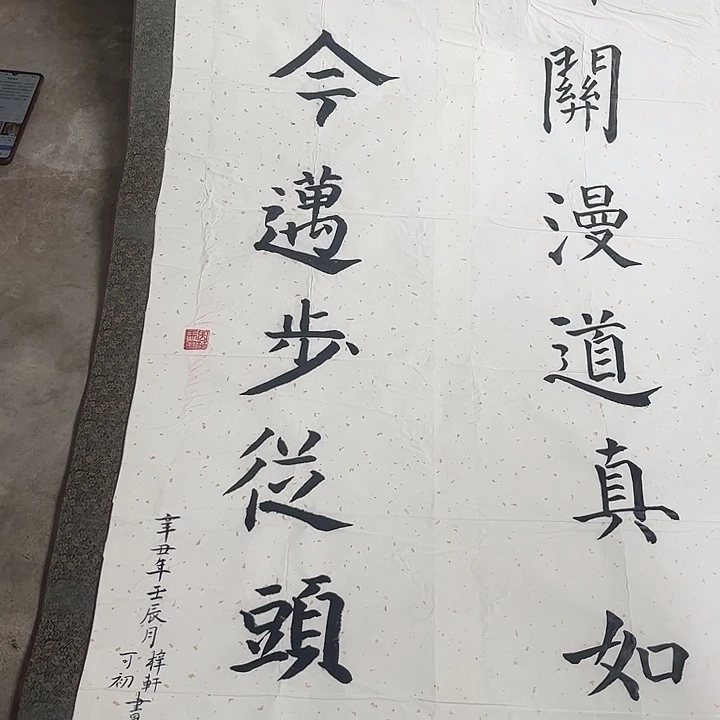 關漫道真如
今邁步從頭
辛丑年壬辰月梓軒
可初書